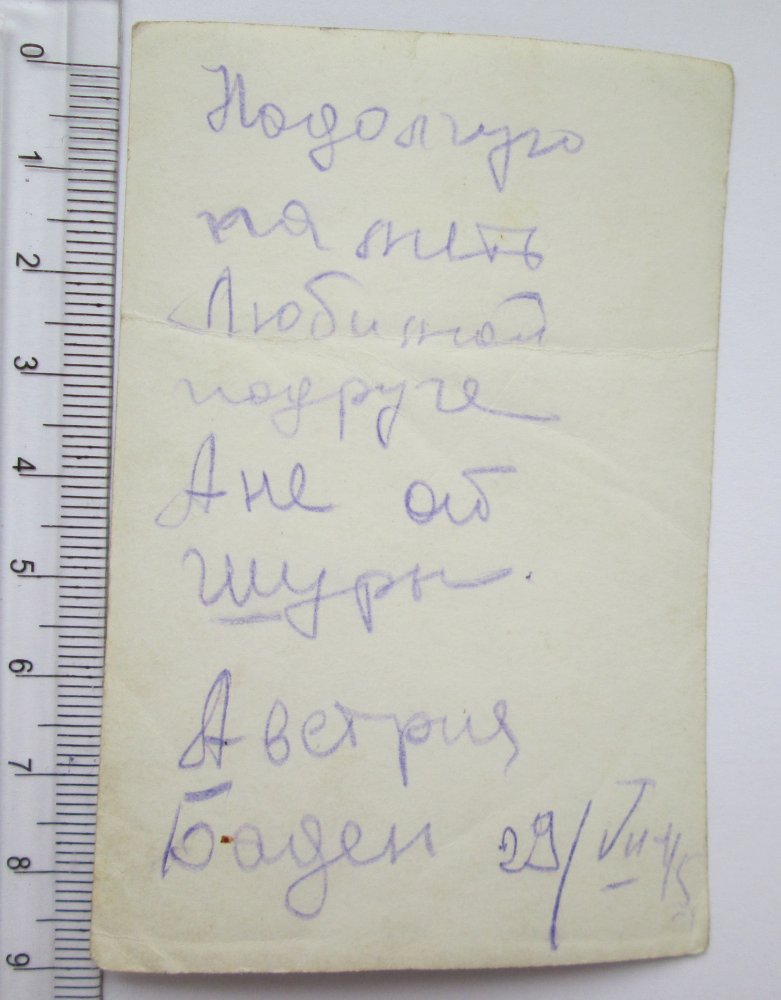 Надолгую
память
Любимой
подруге
Ане от
Шуры.
Австрия
Баден 29/VII 45
0
1
2
3
4
5
6
7
8
9